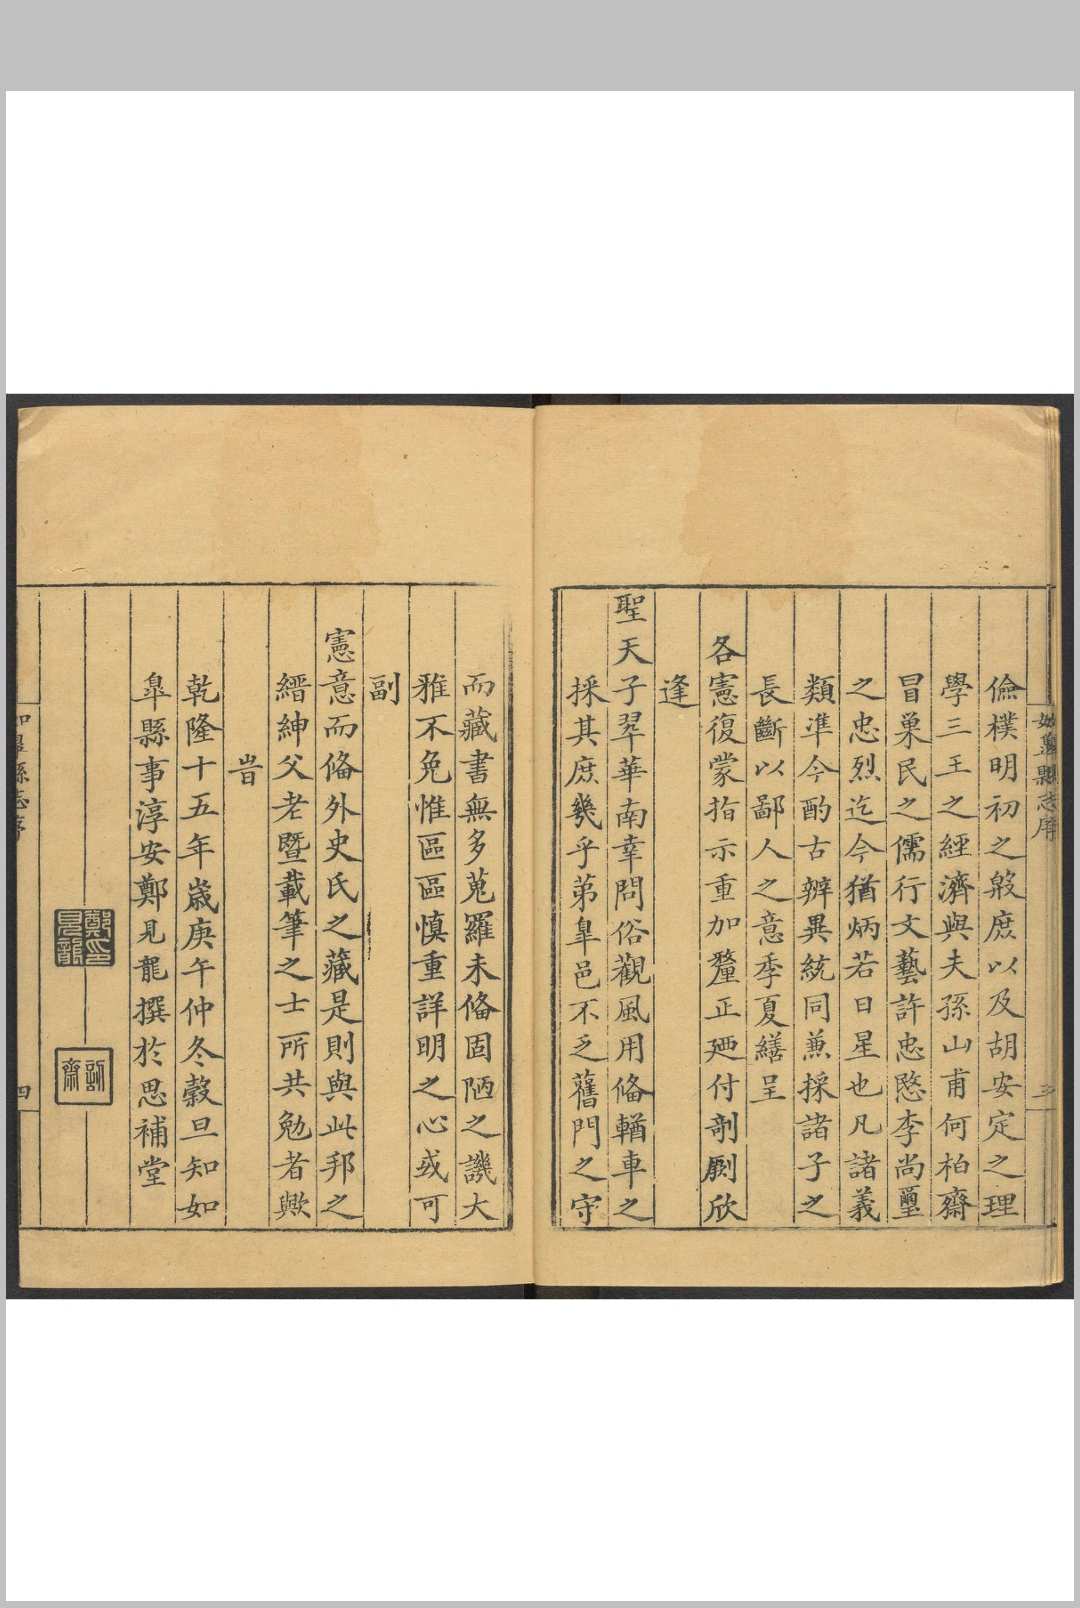 如皋縣志序
三
儉樸明初之殷庶以及胡安定之理
學三王之經濟與夫孫山甫何柏齋
冒巢民之儒行文藝許忠愍李尚璽
之忠烈迄今猶炳若日星也凡諸義
類準今酌古辨異統同兼採諸子之
長斷以鄙人之意季夏繕呈
各憲復蒙指示重加釐正廼付剞劂欣
逢
聖天子翠華南幸問俗觀風用俻輶車之
採其庶幾乎苐皐邑不乏舊門之守
而藏書無多蒐羅未俻固陋之譏大
雅不免惟區區慎重詳明之心或可
副
憲意而俻外史氏之藏是則與此邦之
縉紳父老暨載筆之士所共勉者歟
旹
乾隆十五年歲庚午仲冬穀旦知如
皐縣事淳安鄭見龍撰於思補堂
鄭見龍印
訒齋
如皋縣志序
四